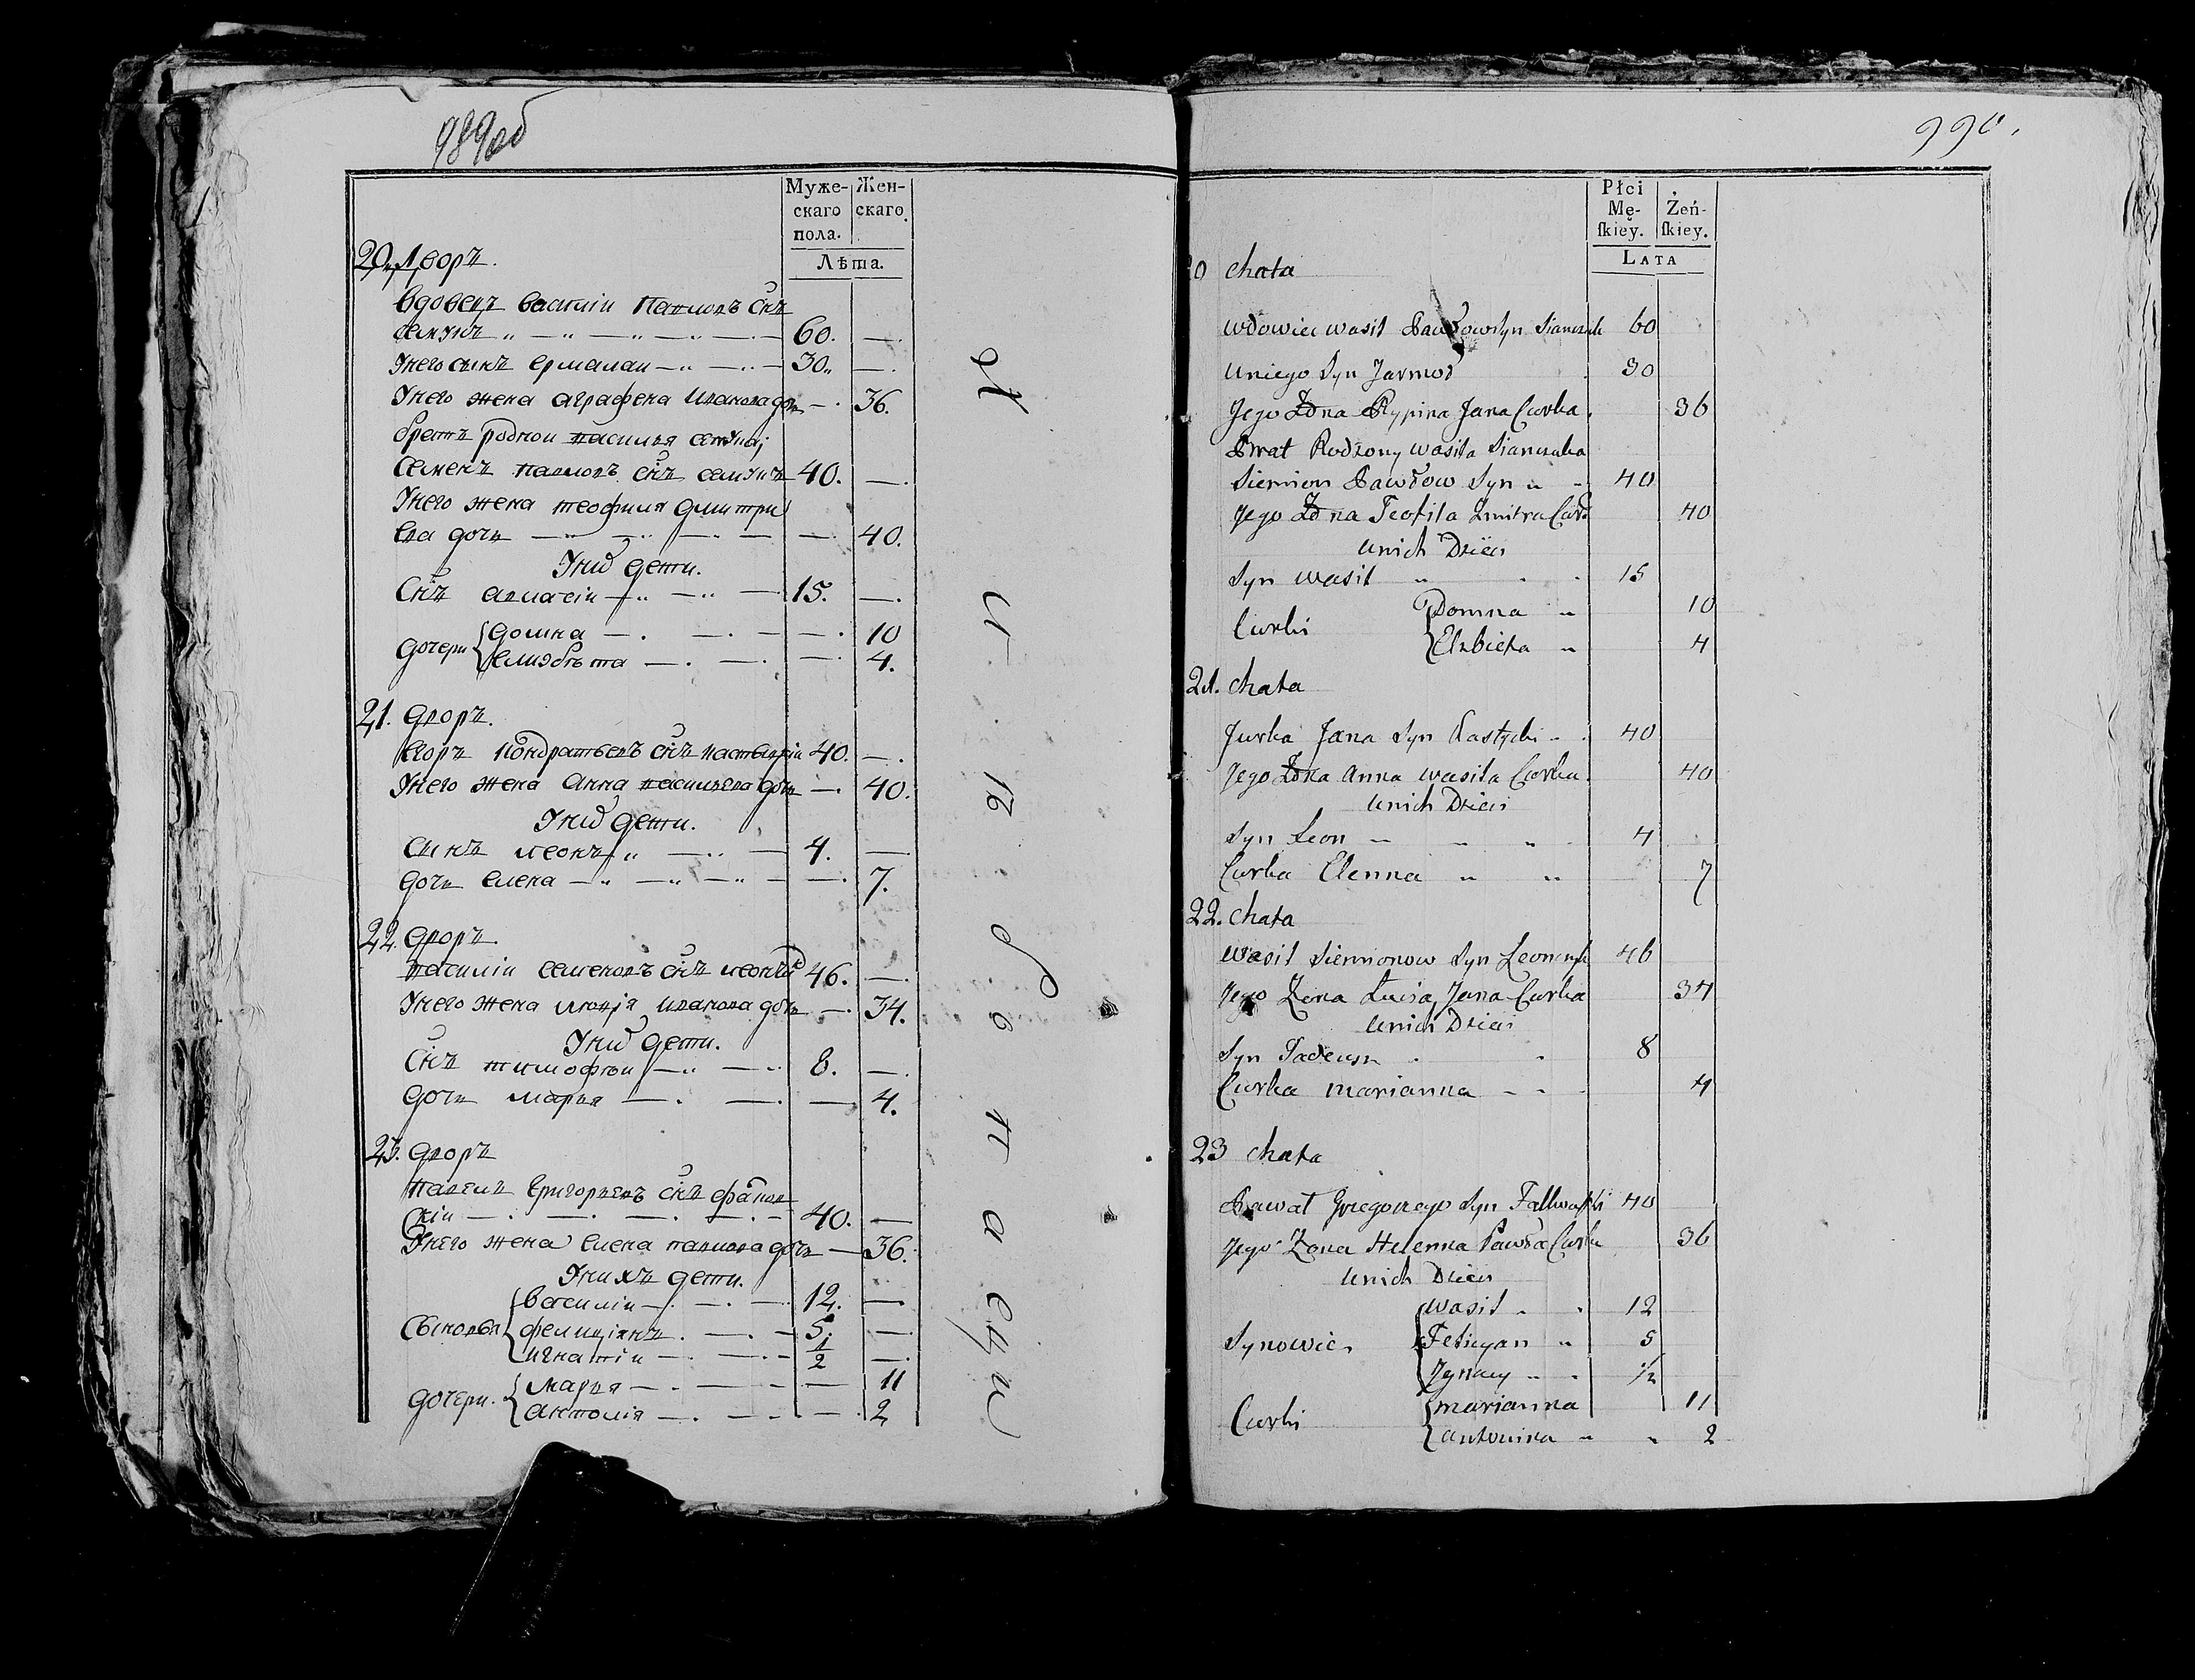 989об
Муже-
скаго
пола.
Жен-
скаго.
Лѣта.
20. Дворъ.
Вдовецъ василiи Павловъ снъ
60. —.
Унего сынъ ермалаи 30. —.
Унего жена аграфена иванова дочь — 36.
братъ роднои василья
Семенъ павловъ снъ 40. —.
Унего жена теофиля дмитри
ева дочь — 40.
Уних дети.
Снъ 15. —.
дочери домна — 10
елизбѣта — 4.
21. дворъ.
егоръ кондратьевъ снъ 40. —.
Унего жена анна васильева дочь — 40.
Уних дети.
сынъ леонъ 4. —
дочь елена — 7.
22. дворъ.
василiи семеновъ снъ 46. —.
Унего жена люцiя иванова дочь — 34.
Уних дети.
Снъ тимофѣи 8. —.
дочь марья — 4.
23. дворъ
павелъ григорьевъ снъ
скiи 40. —
Унего жена елена павлова дочь — 36.
Унихъ дети.
сыновья василiи 12. —
фелицiянъ 5. —
игнатiи 1/2 —.
дочери. марья — 11
антолiя — 2
990.
Płci
Mę-
ſkiey.
Żeń-
ſkiey.
LATA
20 chata
wdowiec wasil Pawłow Syn Sianczuk 60
uniego Syn Jarmoł 30
Jego Żona Krypina Jana Curka 36
Brat Rodzony wasila Sianczuka
Siemion Pawłow Syn 40
Jego Żona Teofila Zmitra Cur 40
unich Dzieci
Syn wasil 15
Curki Domna 10
Elzbieta 4
21. chata
Jurka Jana Syn Kastycki 40
Jego Żona Anna wasila Curka 40
unich Dzieci
Syn Leon 4
Curka Elenna 7
22. chata
wasil Siemionow Syn Leonczyk 46
Jego Zona Łucia Jana Curka 34
unich Dzieci
Syn Tadeusz 8
Curka marianna 4
23 chata
Pawal Gregorego Syn 40
Jego Zona Helenna Pawła Curka 36
unich Dzieci
Synowie wasil 12
Felicyan 5
Jgnacy 1/2
Curki marianna 11
antonina 2